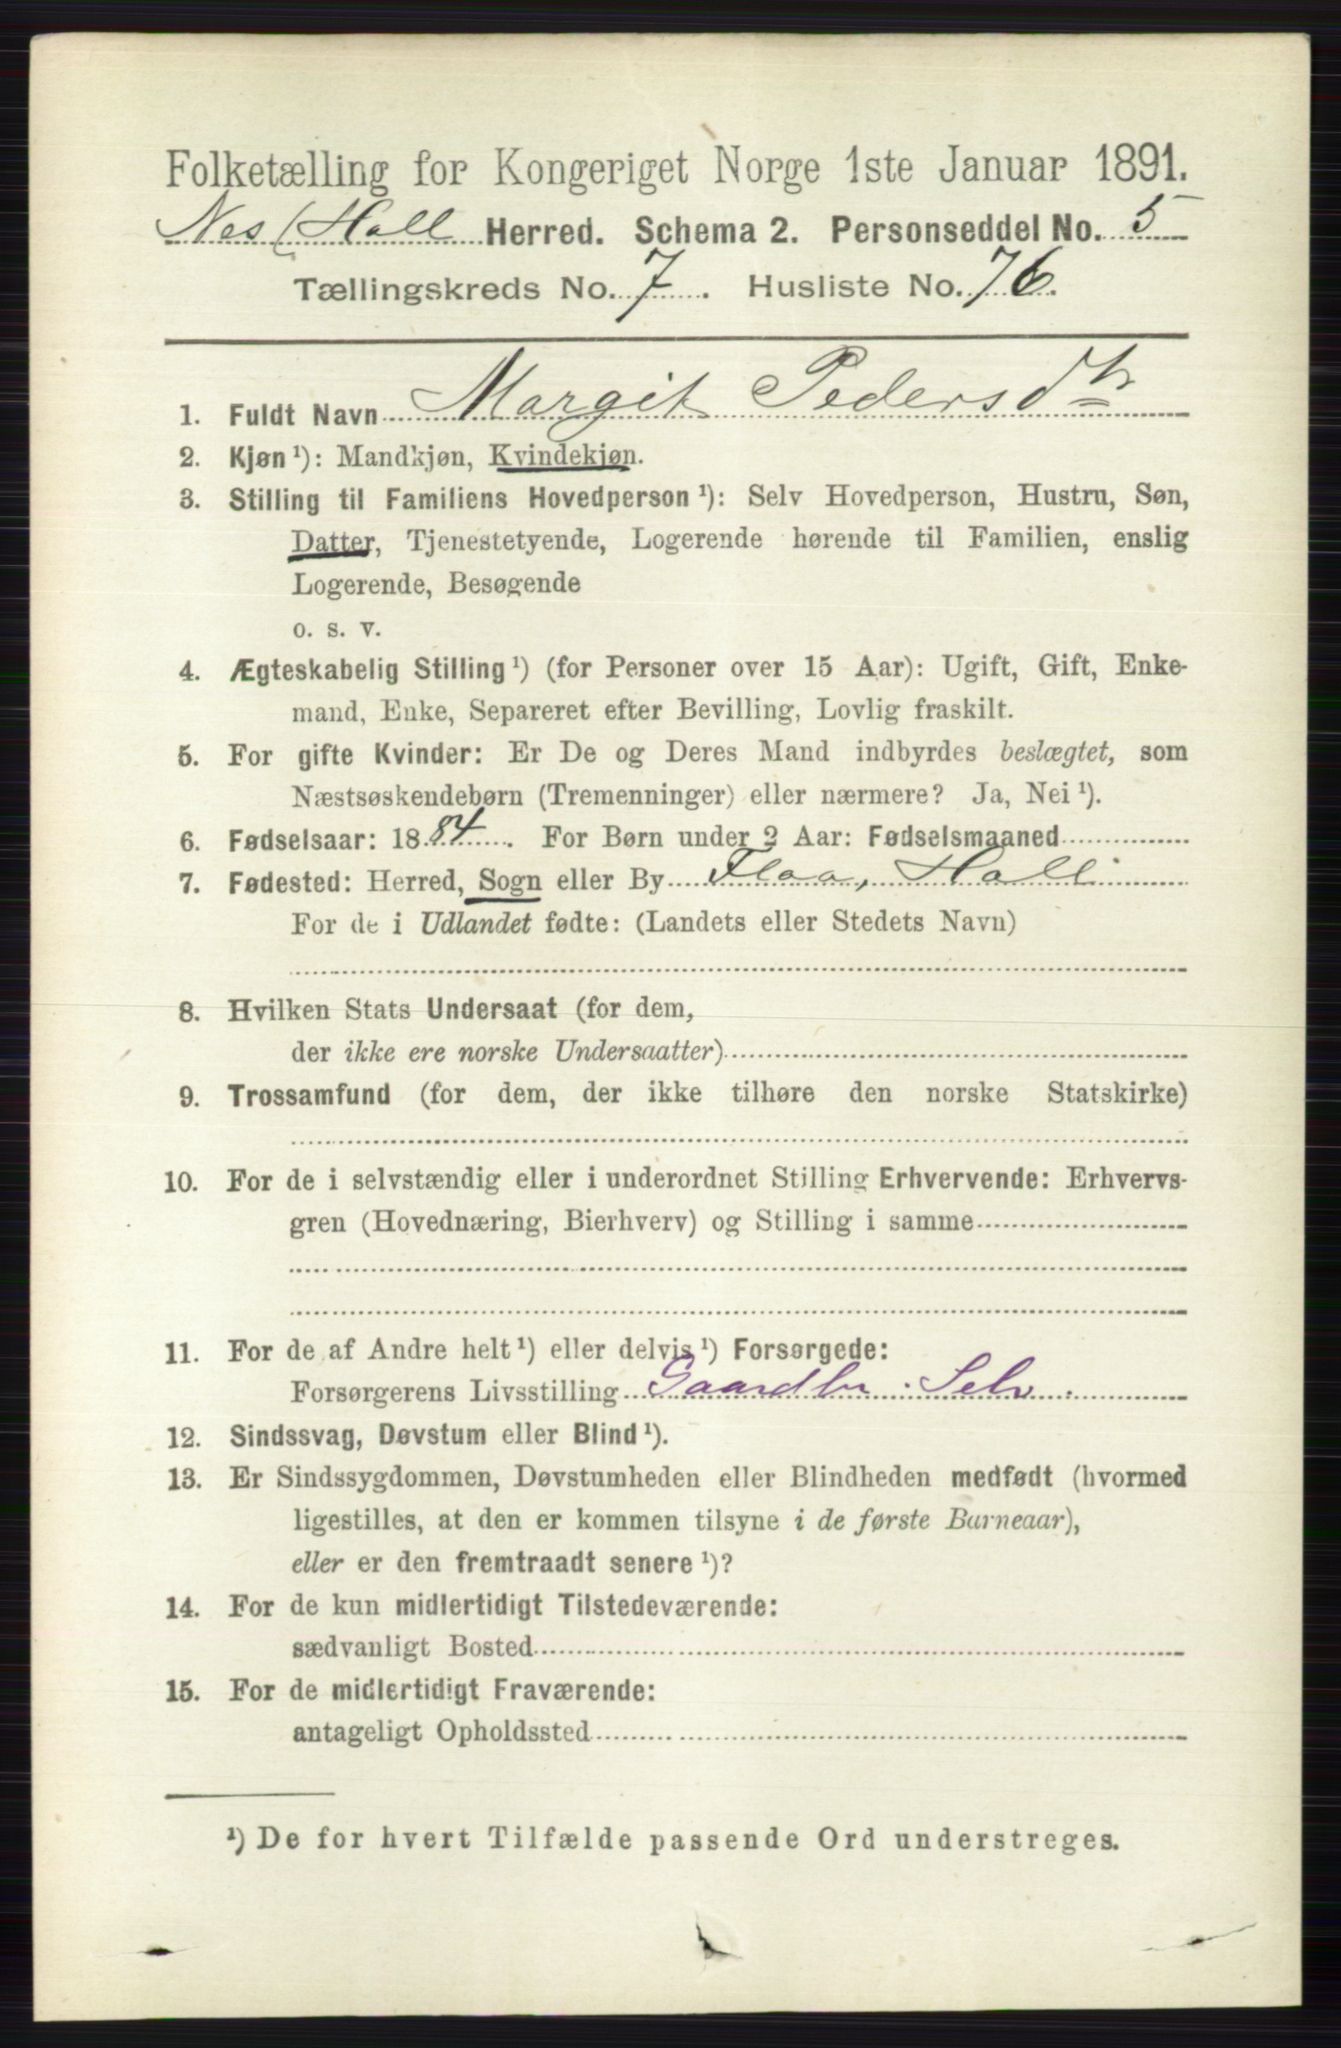 Folketælling for Kongeriget Norge 1ste Januar 1891.
Nes (Hall Herred. Schema 2. Personseddel No. 5
Tællingskreds No. 7. Husliste No. 76.
1. Fuldt Navn Margit Pedersdtr
2. Kjøn ¹): Mandkjøn, Kvindekjøn.
3. Stilling til Familiens Hovedperson ¹): Selv Hovedperson, Hustru, Søn,
Datter, Tjenestetyende, Logerende hørende til Familien, enslig
Logerende, Besøgende
o. s. v.
4. Ægteskabelig Stilling ¹) (for Personer over 15 Aar): Ugift, Gift, Enke-
mand, Enke, Separeret efter Bevilling, Lovlig fraskilt.
5. For gifte Kvinder: Er De og Deres Mand indbyrdes beslægtet, som
Næstsøskendebørn (Tremenninger) eller nærmere? Ja, Nei ¹).
6. Fødselsaar: 1884. For Børn under 2 Aar: Fødselsmaaned
7. Fødested: Herred, Sogn eller By Flaa, Hall
For de i Udlandet fødte: (Landets eller Stedets Navn)
8. Hvilken Stats Undersaat (for dem,
der ikke ere norske Undersaatter)
9. Trossamfund (for dem, der ikke tilhøre den norske Statskirke)
10. For de i selvstændig eller i underordnet Stilling Erhvervende: Erhvervs-
gren (Hovednæring, Bierhverv) og Stilling i samme
11. For de af Andre helt ¹) eller delvis ¹) Forsørgede:
Forsørgerens Livsstilling Gaardbr. Selv.
12. Sindssvag, Døvstum eller Blind ¹).
13. Er Sindssygdommen, Døvstumheden eller Blindheden medfødt (hvormed
ligestilles, at den er kommen tilsyne i de første Barneaar),
eller er den fremtraadt senere ¹)?
14. For de kun midlertidigt Tilstedeværende:
sædvanligt Bosted
15. For de midlertidigt Fraværende:
antageligt Opholdssted
¹) De for hvert Tilfælde passende Ord understreges.